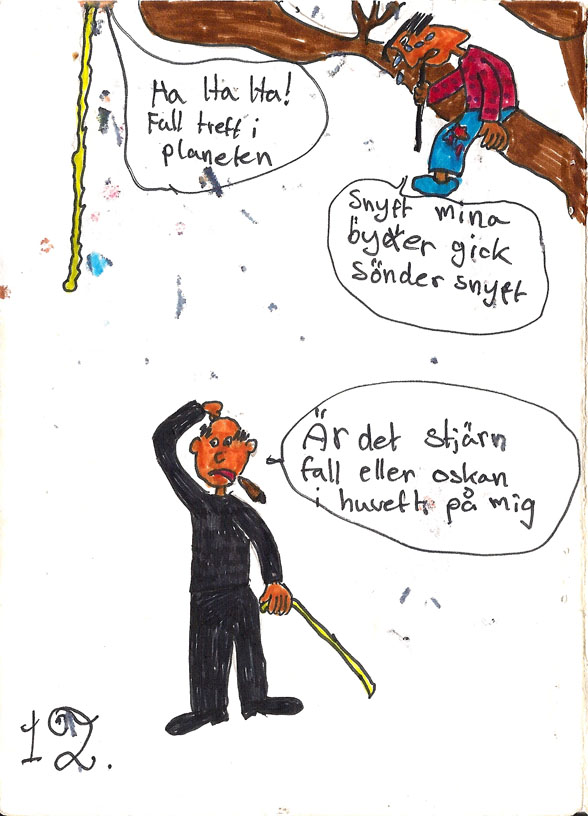 Ha Ha Ha!
Fall treff i
planeten
Snyft mina
byxer gick
sönder snyft
Är det stjärn
fall eller oskan
i huveft på mig
12.